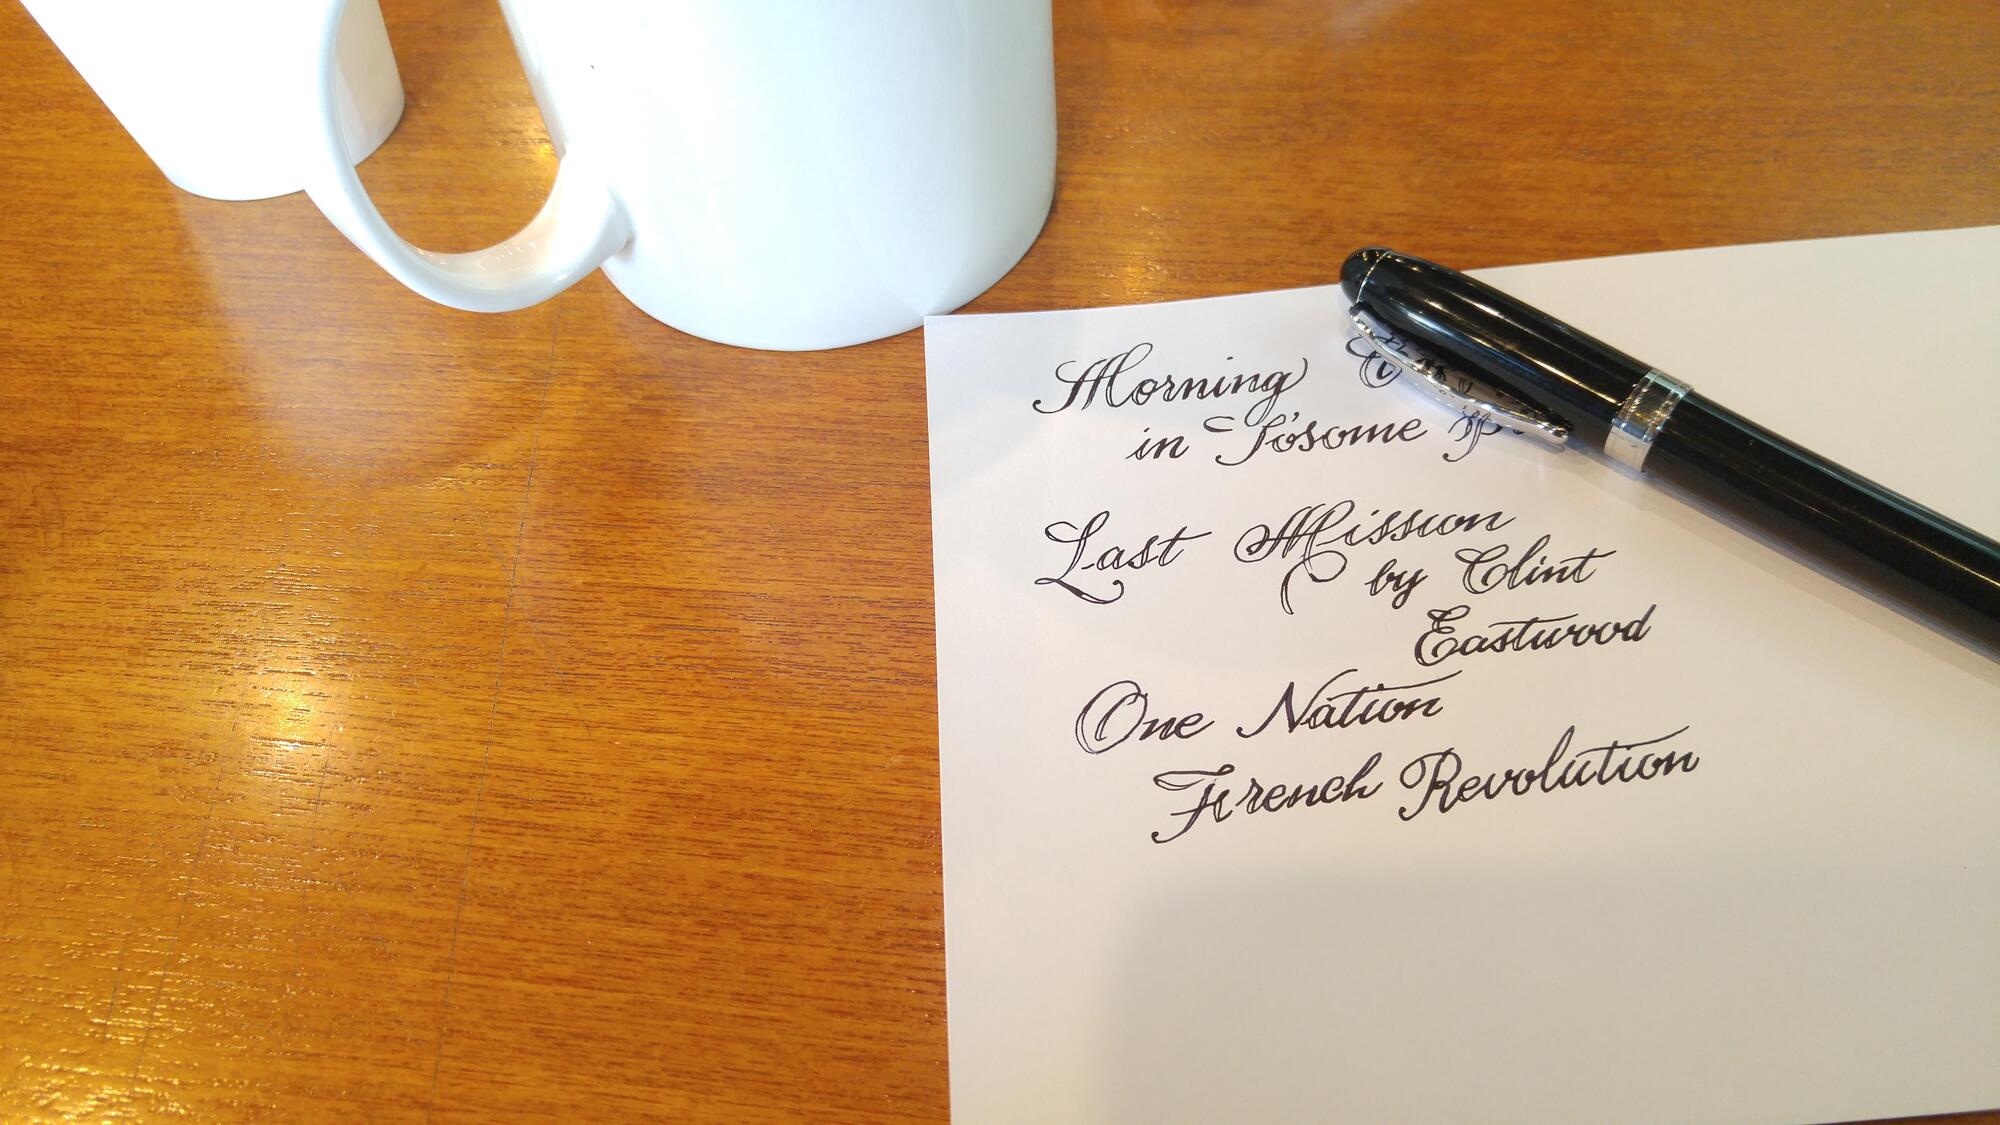 Morning
in Fo'some
Last Mission
by Clint
Eastwood
One Nation
French Revolution